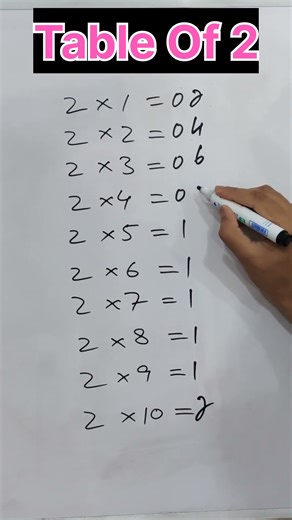 Table Of 2
2 × 1 = 02
2 × 2 = 04
2 × 3 = 06
2 × 4 = 0
2 × 5 = 1
2 × 6 = 1
2 × 7 = 1
2 × 8 = 1
2 × 9 = 1
2 × 10 = 2